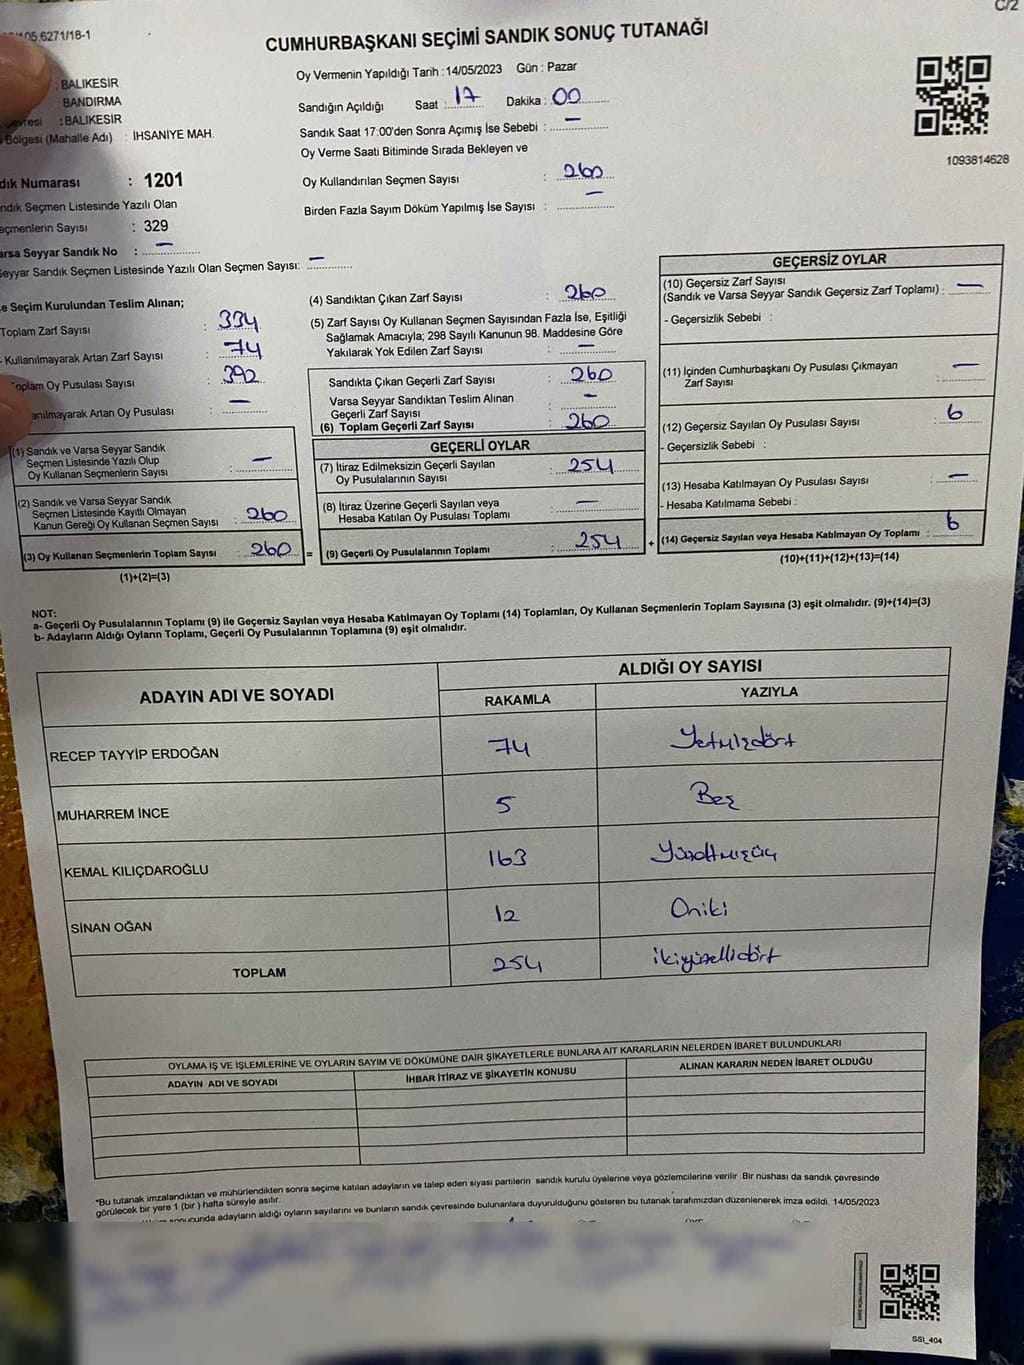 C/2
105.6271/18-1
CUMHURBAŞKANI SEÇİMİ SANDIK SONUÇ TUTANAĞI
: BALIKESİR
: BANDIRMA
: BALIKESİR
Bölgesi (Mahalle Adı) : İHSANİYE MAH.
Oy Vermenin Yapıldığı Tarih :14/05/2023 Gün : Pazar
Sandığın Açıldığı Saat : 17 Dakika : 00
Sandık Saat 17:00'den Sonra Açımış İse Sebebi : —
Oy Verme Saati Bitiminde Sırada Bekleyen ve
Oy Kullandırılan Seçmen Sayısı : 260
Birden Fazla Sayım Döküm Yapılmış İse Sayısı : —
1093814628
dık Numarası : 1201
ndık Seçmen Listesinde Yazılı Olan
eçmenlerin Sayısı : 329
arsa Seyyar Sandık No : —
Seyyar Sandık Seçmen Listesinde Yazılı Olan Seçmen Sayısı: —
e Seçim Kurulundan Teslim Alınan;
Toplam Zarf Sayısı : 334
Kullanılmayarak Artan Zarf Sayısı : 74
oplam Oy Pusulası Sayısı : 392
anılmayarak Artan Oy Pusulası : —
(1) Sandık ve Varsa Seyyar Sandık
Seçmen Listesinde Yazılı Olup
Oy Kullanan Seçmenlerin Sayısı : —
(2) Sandık ve Varsa Seyyar Sandık
Seçmen Listesinde Kayıtlı Olmayan
Kanun Gereği Oy Kullanan Seçmen Sayısı : 260
(3) Oy Kullanan Seçmenlerin Toplam Sayısı : 260 =
(1)+(2)=(3)
(4) Sandıktan Çıkan Zarf Sayısı : 260
(5) Zarf Sayısı Oy Kullanan Seçmen Sayısından Fazla İse, Eşitliği
Sağlamak Amacıyla; 298 Sayılı Kanunun 98. Maddesine Göre
Yakılarak Yok Edilen Zarf Sayısı : —
Sandıkta Çıkan Geçerli Zarf Sayısı : 260
Varsa Seyyar Sandıktan Teslim Alınan
Geçerli Zarf Sayısı : -
(6) Toplam Geçerli Zarf Sayısı : 260
GEÇERLİ OYLAR
(7) İtiraz Edilmeksizin Geçerli Sayılan
Oy Pusulalarının Sayısı : 254
(8) İtiraz Üzerine Geçerli Sayılan veya
Hesaba Katılan Oy Pusulası Toplamı : —
(9) Geçerli Oy Pusulalarının Toplamı : 254 +
GEÇERSİZ OYLAR
(10) Geçersiz Zarf Sayısı
(Sandık ve Varsa Seyyar Sandık Geçersiz Zarf Toplamı) : —
- Geçersizlik Sebebi :
(11) İçinden Cumhurbaşkanı Oy Pusulası Çıkmayan
Zarf Sayısı : —
(12) Geçersiz Sayılan Oy Pusulası Sayısı : 6
- Geçersizlik Sebebi :
(13) Hesaba Katılmayan Oy Pusulası Sayısı : —
- Hesaba Katılmama Sebebi :
(14) Geçersiz Sayılan veya Hesaba Katılmayan Oy Toplamı : 6
(10)+(11)+(12)+(13)=(14)
NOT:
a- Geçerli Oy Pusulalarının Toplamı (9) ile Geçersiz Sayılan veya Hesaba Katılmayan Oy Toplamı (14) Toplamları, Oy Kullanan Seçmenlerin Toplam Sayısına (3) eşit olmalıdır. (9)+(14)=(3)
b- Adayların Aldığı Oyların Toplamı, Geçerli Oy Pusulalarının Toplamına (9) eşit olmalıdır.
ADAYIN ADI VE SOYADI
ALDIĞI OY SAYISI
RAKAMLA YAZIYLA
RECEP TAYYİP ERDOĞAN 74 Yetmişdört
MUHARREM İNCE 5 Beş
KEMAL KILIÇDAROĞLU 163 Yüzaltmışüç
SİNAN OĞAN 12 Oniki
TOPLAM 254 ikiyüzellidört
OYLAMA İŞ VE İŞLEMLERİNE VE OYLARIN SAYIM VE DÖKÜMÜNE DAİR ŞİKAYETLERLE BUNLARA AİT KARARLARIN NELERDEN İBARET BULUNDUKLARI
ADAYIN ADI VE SOYADI İHBAR İTİRAZ VE ŞİKAYETİN KONUSU ALINAN KARARIN NEDEN İBARET OLDUĞU
*Bu tutanak imzalandıktan ve mühürlendikten sonra seçime katılan adayların ve talep eden siyasi partilerin sandık kurulu üyelerine veya gözlemcilerine verilir. Bir nüshası da sandık çevresinde
görülecek bir yere 1 (bir) hafta süreyle asılır.
sonucunda adayların aldığı oyların sayılarını ve bunların sandık çevresinde bulunanlara duyurulduğunu gösteren bu tutanak tarafımızdan düzenlenerek imza edildi. 14/05/2023
SSI_404